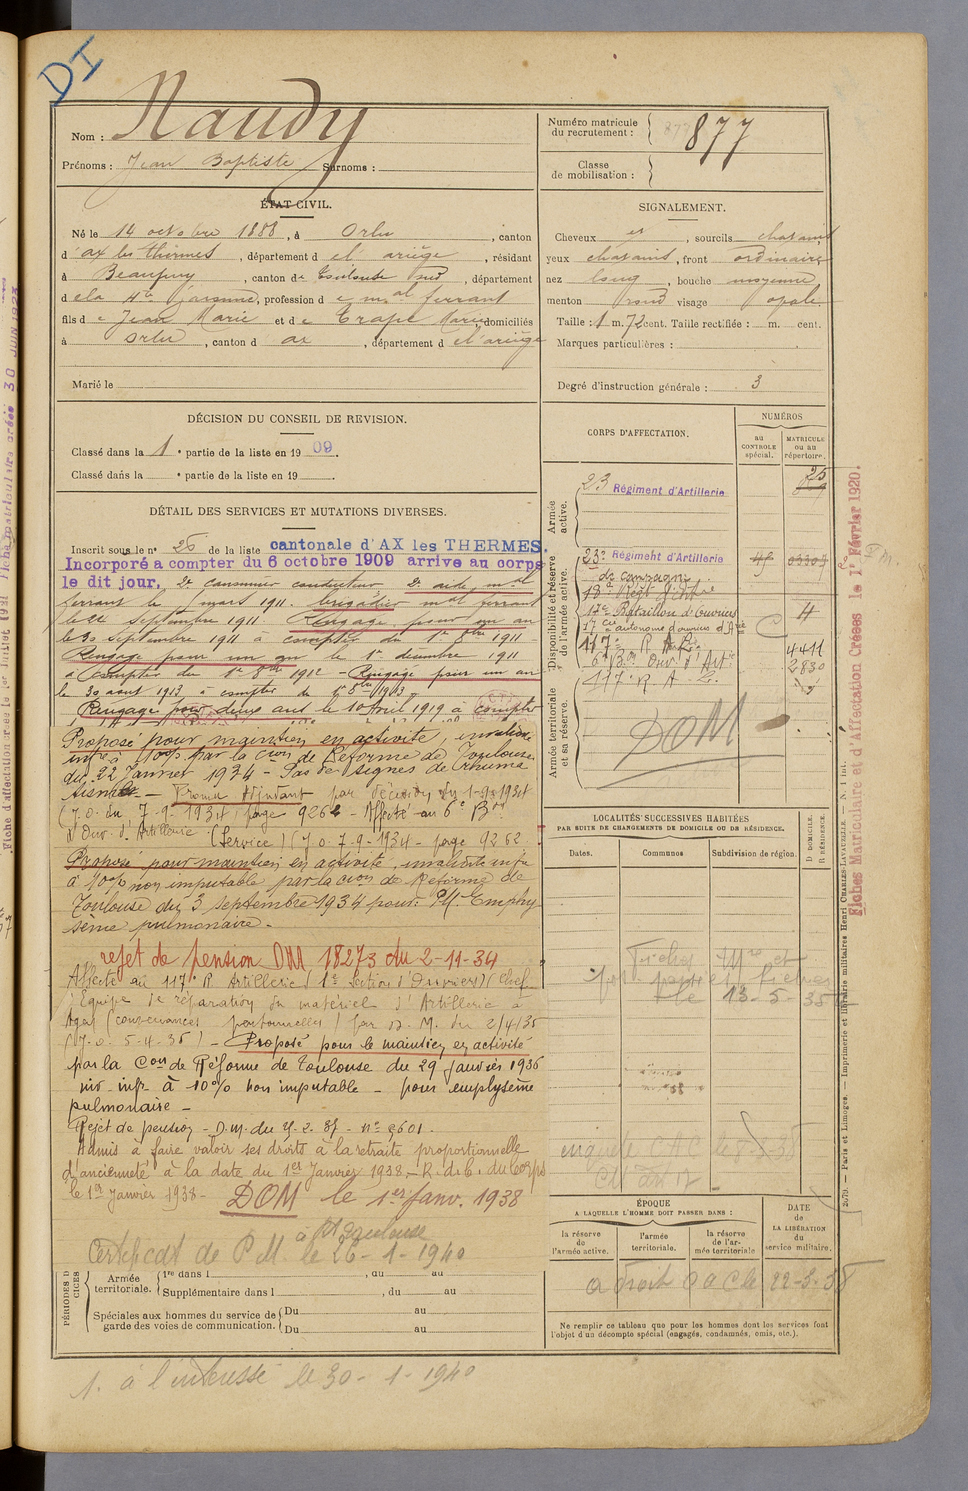 DI
Nom : Naudy
Prénoms : Jean Baptiste Surnoms :
Numéro matricule du recrutement : 877
Classe de mobilisation :
ÉTAT CIVIL.
Né le 14 octobre 1888, à Orlu, canton
d'ax les thermes, département de l'ariège, résidant
à Beaupuy, canton de Toulouse sud, département
de la Hte Garonne, profession de mal ferrant
fils de Jean Marie et de Trape Marie domiciliés
à orlu, canton d'ax, département de l'ariège
Marié le
SIGNALEMENT.
Cheveux et, sourcils chatains
yeux chatains, front ordinaire
nez long, bouche moyenne
menton rond visage ovale
Taille : 1 m. 72 cent. Taille rectifiée : m. cent.
Marques particulières :
Degré d'instruction générale : 3
DÉCISION DU CONSEIL DE REVISION.
Classé dans la 1e partie de la liste en 1909.
Classé dans la e partie de la liste en 19
DÉTAIL DES SERVICES ET MUTATIONS DIVERSES.
Inscrit sous le n° 26 de la liste cantonale d'AX les THERMES.
Incorporé a compter du 6 octobre 1909 arrive au corps
le dit jour. 2e canonnier conducteur 2e aide mal
ferrant le 1e mars 1911. brigadier mal ferrant
le 22 septembre 1911 Rengagé pour un an
le 30 septembre 1911 à compter du 1e 8bre 1911 -
Rengagé pour un an le 1e décembre 1911
à compter du 1e 8bre 1912 - Rengagé pour un an
le 30 aout 1913 à compter du 1e 8bre 1913
Rengagé pour deux ans le 10 Avril 1919 à compter
Proposé pour maintien en activité, invalidité
infre à 10% par la Cion de Réforme de Toulouse
du 22 Janvier 1934 - Pas de signes de
Promu Adjudant par décision du 1-9-1934
(J.O. du 7-9-1934 page 9262 - Affecté au 6e Bon
d'Ouv. d'Artillerie (Service) (J.O. 7-9-1934 - page 9262
Proposé pour maintien en activité, invalidité infre
à 10% non imputable par la Cion de Réforme de
Toulouse du 3 septembre 1934 pour: Emphy
sème pulmonaire.
rejet de pension DM 18273 du 2-11-34
Affecté au 117e R Artillerie (1e Section d'Ouvriers) (Chef
d'Equipe de réparation du matériel d'Artillerie à
Agen (convenances personnelles) par D.M. du 2/4/35
(J.O. 5-4-35) - Proposé pour le maintien en activité
par la Con de Réforme de Toulouse du 29 janvier 1936
inv. infr à 10% non imputable - pour emphysème
pulmonaire -
Rejet de pension - D.M. du
Admis à faire valoir ses droits à la retraite proportionnelle
d'ancienneté à la date du 1er Janvier 1938. - R. d. C. du Corps
le 1er Janvier 1938 - DOM le 1er Janv. 1938
à Toulouse
Certificat de P M le 26-1-1940
PÉRIODES D
CICES
Armée territoriale.
1re dans l , du au
Supplémentaire dans l , du au
Spéciales aux hommes du service de garde des voies de communication.
Du au
Du au
1. à l'intéressé le 30-1-1940
CORPS D'AFFECTATION.
NUMÉROS
au CONTROLE spécial.
MATRICULE ou au répertoire.
Armée active.
23 Régiment d'Artillerie 25
Disponibilité et réserve de l'armée active.
23e Régiment d'Artillerie
de campagne
18e Régt d'Artie
17e Bataillon d'Ouvriers 4
17 Cie autonome d'ouvriers d'Artie C
117e R A L. 4411
6e Bon Ouv. d'Artie 2830
117e R A L.
Armée territoriale et sa réserve.
DOM
LOCALITÉS SUCCESSIVES HABITÉES
PAR SUITE DE CHANGEMENTS DE DOMICILE OU DE RÉSIDENCE.
Dates.
Communes
Subdivision de région.
D DOMICILE.
R RÉSIDENCE.
le 13-5-35
ÉPOQUE
A LAQUELLE L'HOMME DOIT PASSER DANS :
la réserve de l'armée active.
l'armée territoriale.
la réserve de l'armée territoriale
DATE de LA LIBÉRATION du service militaire.
a droit a a C le 22-3-38
Ne remplir ce tableau que pour les hommes dont les services font l'objet d'un décompte spécial (engagés, condamnés, omis, etc.).
Fiches Matriculaire et d'Affectation Créées le 1er Février 1920.
2079. — Paris et Limoges. — Imprimerie et librairie militaires Henri CHARLES-LAVAUZELLE. — N. 1 int.